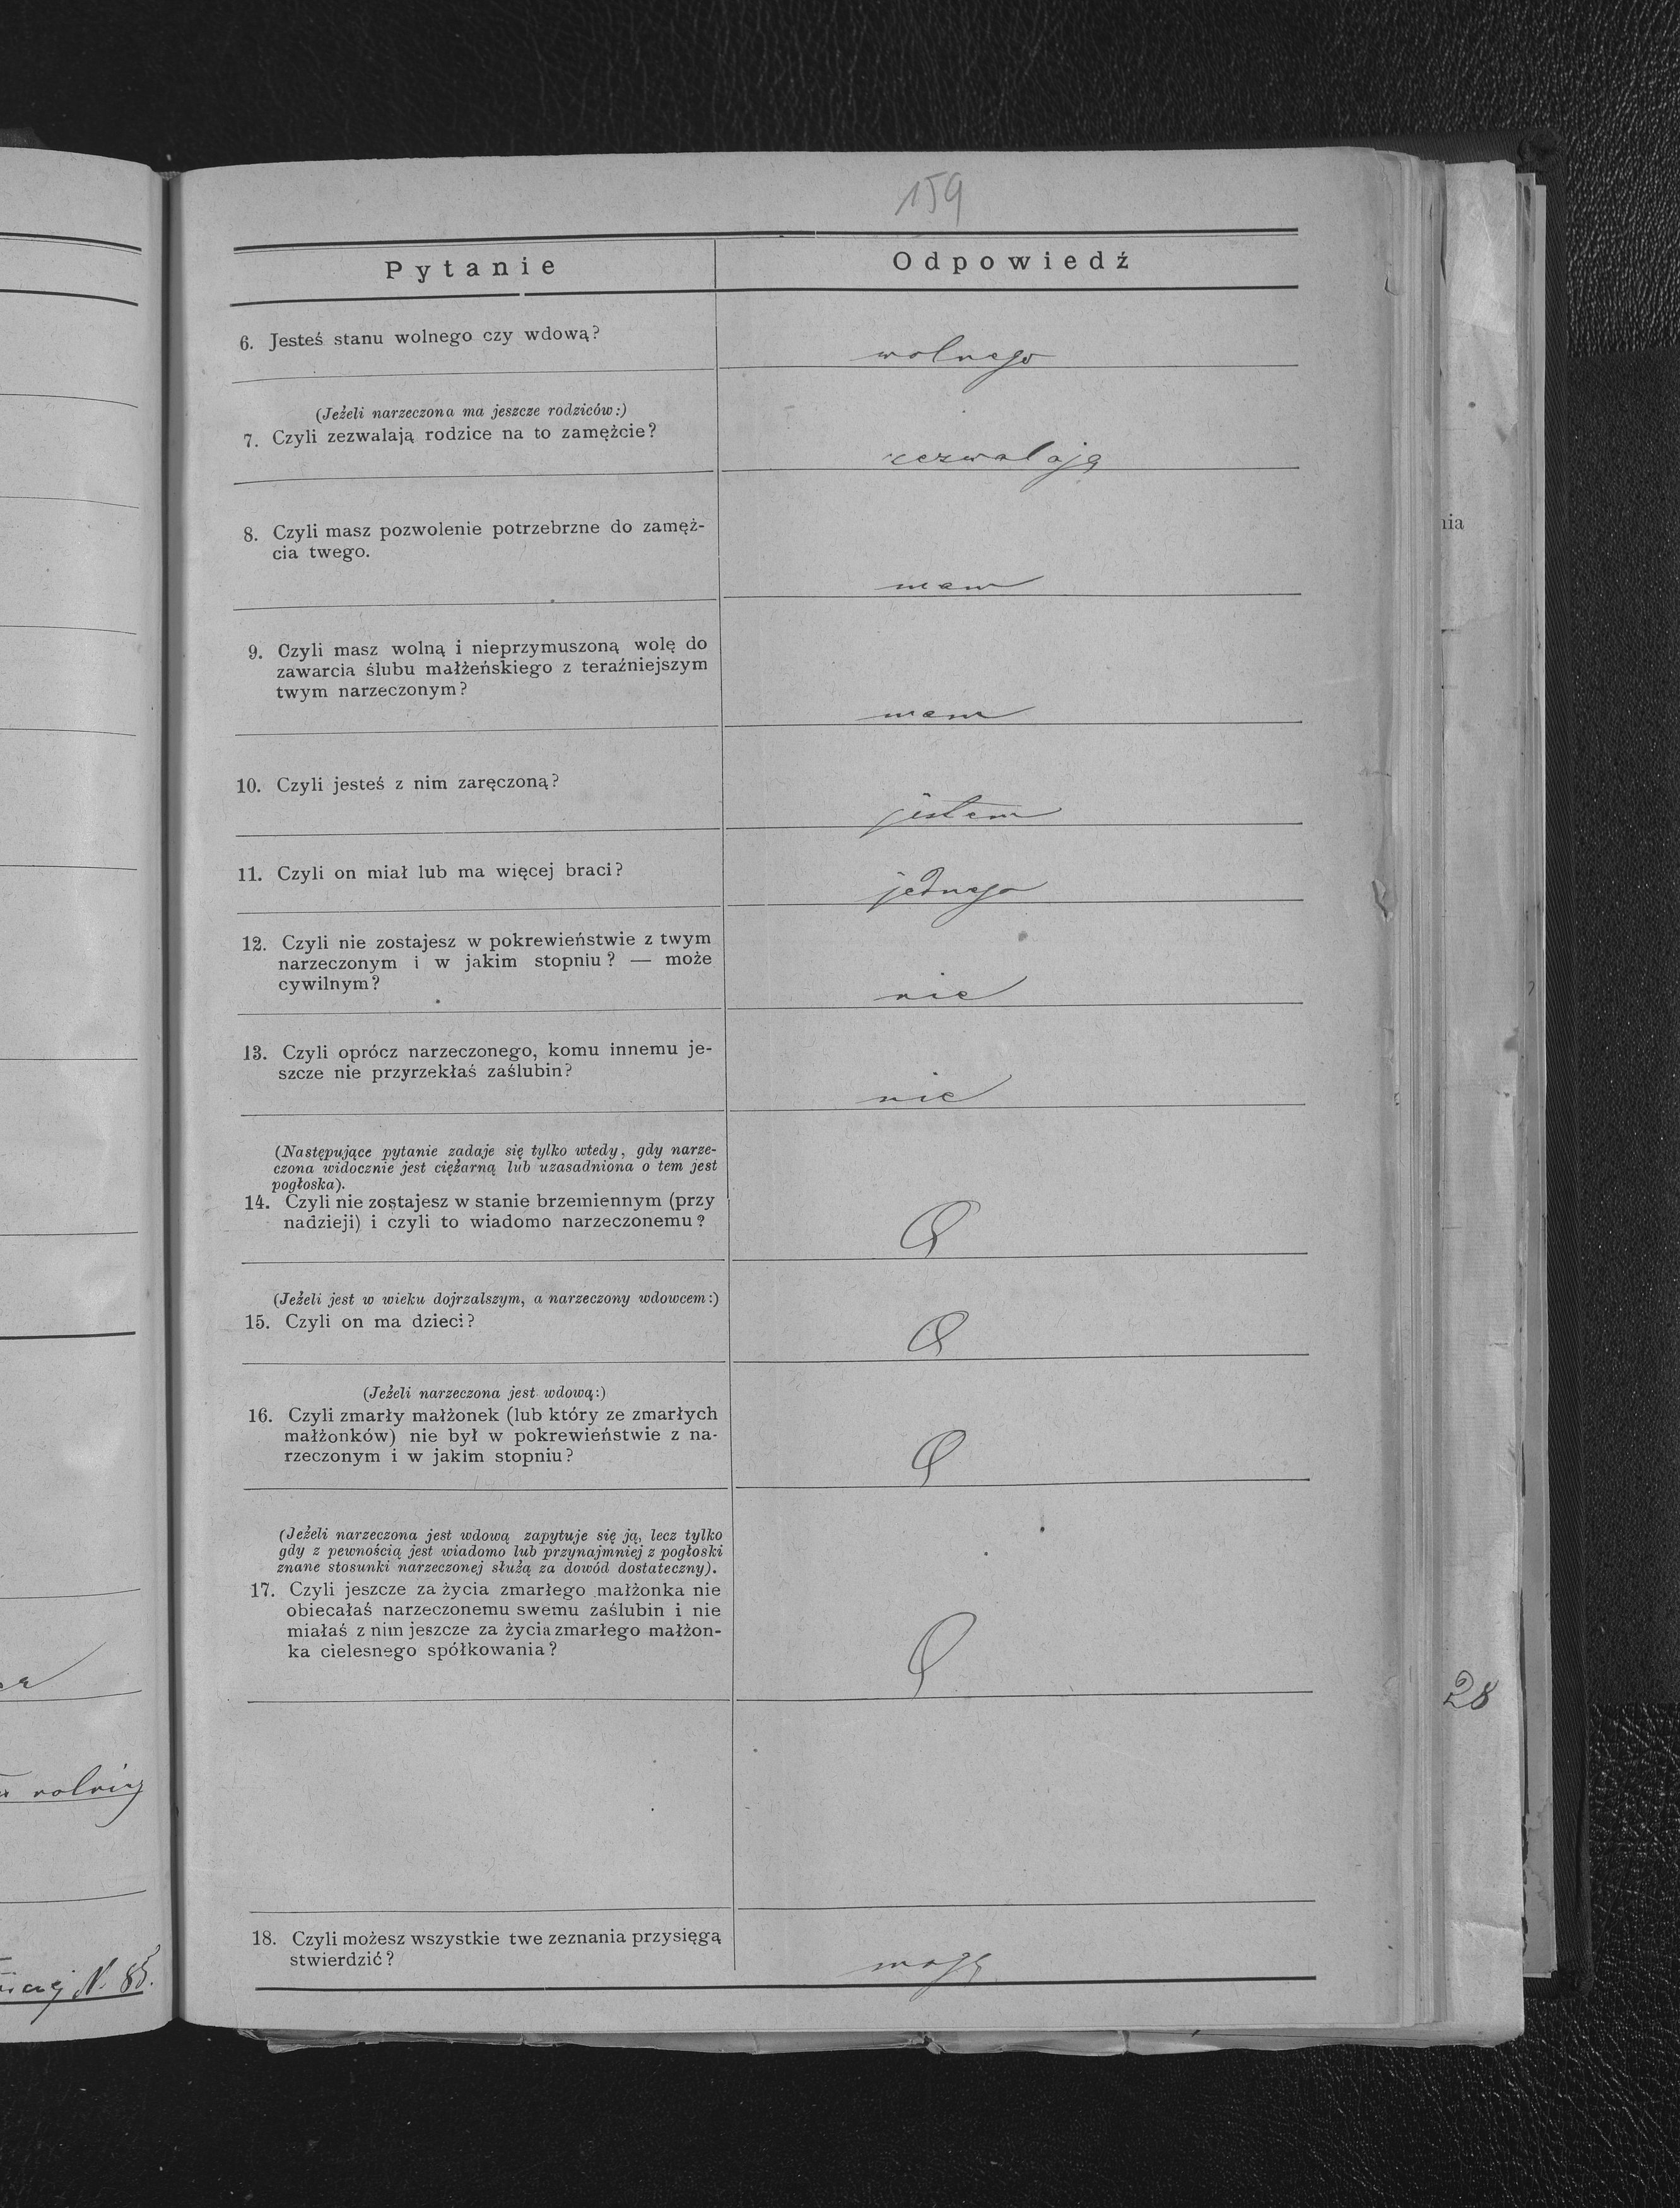 159
Pytanie
Odpowiedź
6. Jesteś stanu wolnego czy wdową?
wolnego
(Jeżeli narzeczona ma jeszcze rodziców:)
7. Czyli zezwalają rodzice na to zamężcie?
zezwalają
8. Czyli masz pozwolenie potrzebrzne do zamęż-
cia twego.
mam
9. Czyli masz wolną i nieprzymuszoną wolę do
zawarcia ślubu małżeńskiego z teraźniejszym
twym narzeczonym?
mam
10. Czyli jesteś z nim zaręczoną?
jestem
11. Czyli on miał lub ma więcej braci?
jednego
12. Czyli nie zostajesz w pokrewieństwie z twym
narzeczonym i w jakim stopniu? — może
cywilnym?
nie
13. Czyli oprócz narzeczonego, komu innemu je-
szcze nie przyrzekłaś zaślubin?
nie
(Następujące pytanie zadaje się tylko wtedy, gdy narze-
czona widocznie jest ciężarną lub uzasadniona o tem jest
pogłoska).
14. Czyli nie zostajesz w stanie brzemiennym (przy
nadzieji) i czyli to wiadomo narzeczonemu?
(Jeżeli jest w wieku dojrzalszym, a narzeczony wdowcem:)
15. Czyli on ma dzieci?
(Jeżeli narzeczona jest wdową:)
16. Czyli zmarły małżonek (lub który ze zmarłych
małżonków) nie był w pokrewieństwie z na-
rzeczonym i w jakim stopniu?
(Jeżeli narzeczona jest wdową zapytuje się ją, lecz tylko
gdy z pewnością jest wiadomo lub przynajmniej z pogłoski
znane stosunki narzeczonej służą za dowód dostateczny).
17. Czyli jeszcze za życia zmarłego małżonka nie
obiecałaś narzeczonemu swemu zaślubin i nie
miałaś z nim jeszcze za życia zmarłego małżon-
ka cielesnego spółkowania?
18. Czyli możesz wszystkie twe zeznania przysięgą
stwierdzić?
mogę
N. 85.
nia
28